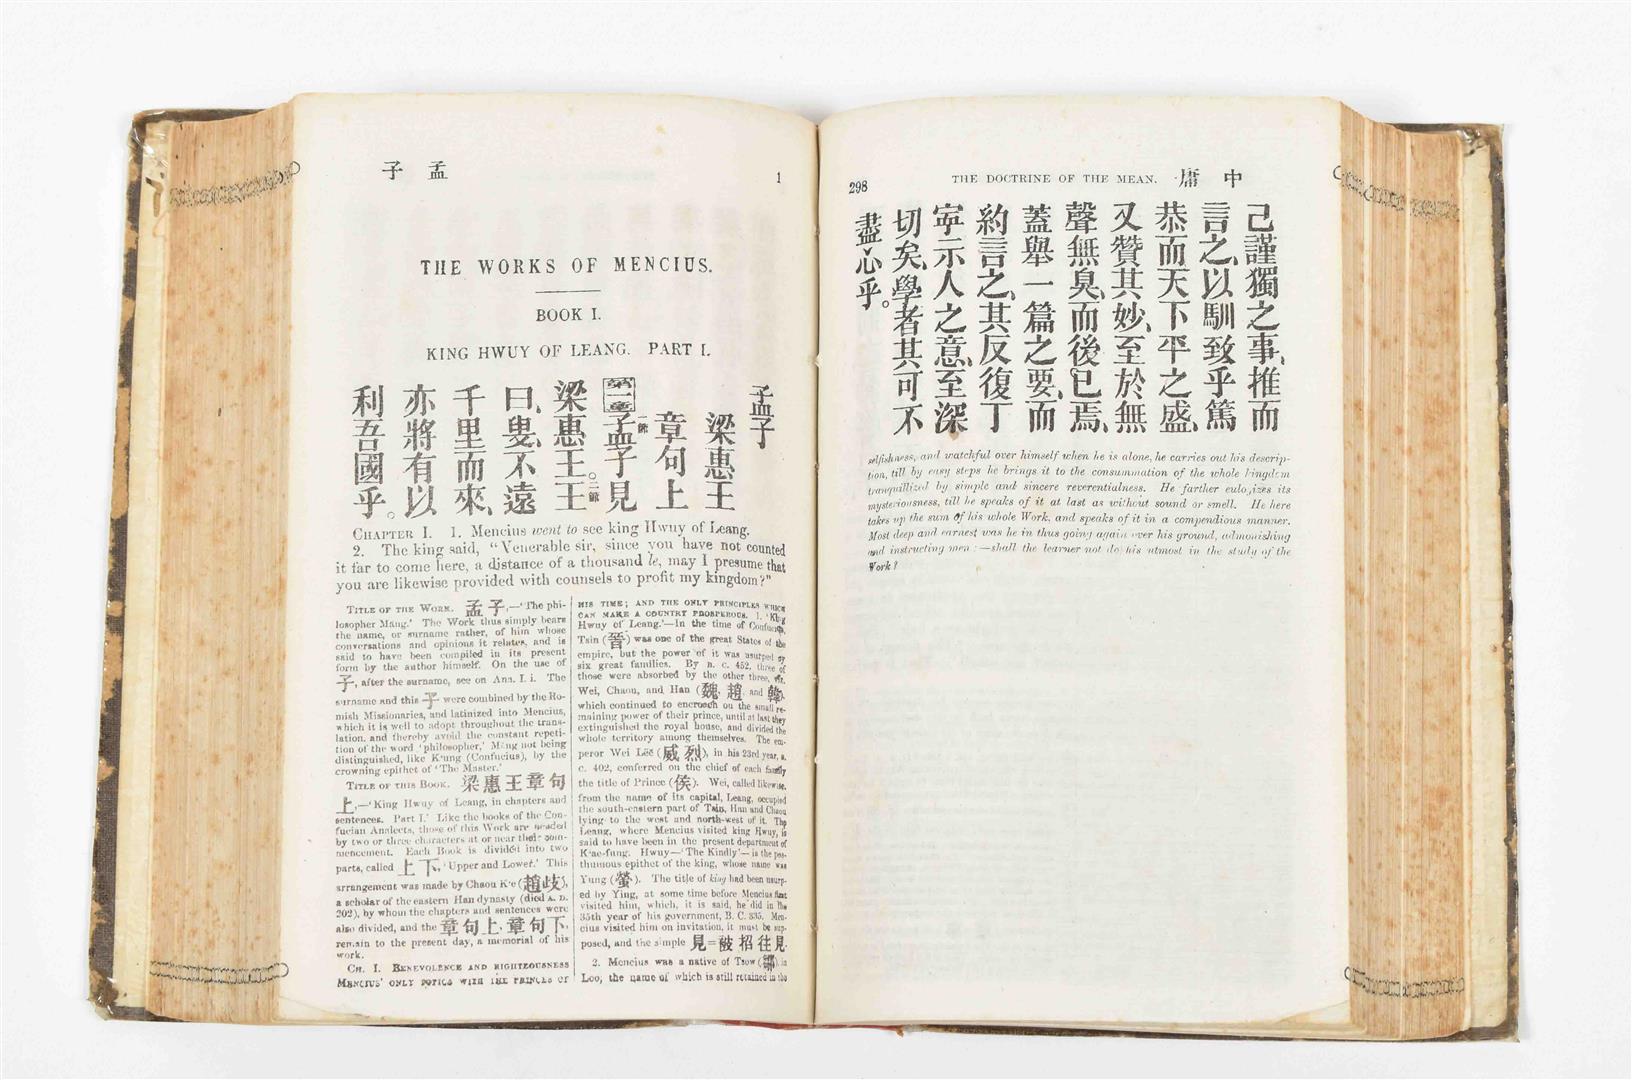 孟子
1
THE WORKS OF MENCIUS.
BOOK I.
KING HWUY OF LEANG. PART I.
孟子
梁惠王
章句上
第一章 一節 孟子見
梁惠王。二節 王
曰、叟、不遠
千里而來、
亦將有以
利吾國乎。
CHAPTER I. 1. Mencius went to see king Hwuy of Leang.
2. The king said, “Venerable sir, since you have not counted
it far to come here, a distance of a thousand le, may I presume that
you are likewise provided with counsels to profit my kingdom?”
TITLE OF THE WORK. 孟子,—‘The phi-
losopher Mang.’ The Work thus simply bears
the name, or surname rather, of him whose
conversations and opinions it relates, and is
said to have been compiled in its present
form by the author himself. On the use of
子, after the surname, see on Ana. I. i. The
surname and this 子 were combined by the Ro-
mish Missionaries, and latinized into Mencius,
which it is well to adopt throughout the trans-
lation, and thereby avoid the constant repeti-
tion of the word ‘philosopher,’ Mang not being
distinguished, like K‘ung (Confucius), by the
crowning epithet of ‘The Master.’
TITLE OF THIS BOOK. 梁惠王章句
上,—‘King Hwuy of Leang, in chapters and
sentences. Part I.’ Like the books of the Con-
fucian Analects, those of this Work are headed
by two or three characters at or near their com-
mencement. Each Book is divided into two
parts, called 上下, ‘Upper and Lower.’ This
arrangement was made by Chaou K‘e (趙岐),
a scholar of the eastern Han dynasty (died A. D.
202), by whom the chapters and sentences were
also divided, and the 章句上, 章句下,
remain to the present day, a memorial of his
work.
CH. I. BENEVOLENCE AND RIGHTEOUSNESS
MENCIUS’ ONLY TOPICS WITH THE PRINCES OF
HIS TIME; AND THE ONLY PRINCIPLES WHICH
CAN MAKE A COUNTRY PROSPEROUS. 1. ‘King
Hwuy of Leang.’—In the time of Confucius,
Tsin (晉) was one of the great States of the
empire, but the power of it was usurped by
six great families. By B. C. 452, three of
those were absorbed by the other three, viz.
Wei, Chaou, and Han (魏, 趙, and 韓),
which continued to encroach on the small re-
maining power of their prince, until at last they
extinguished the royal house, and divided the
whole territory among themselves. The em-
peror Wei Lëë (威烈), in his 23rd year, B.
C. 402, conferred on the chief of each family
the title of Prince (侯). Wei, called likewise,
from the name of its capital, Leang, occupied
the south-eastern part of Tsin, Han and Chaou
lying to the west and north-west of it. The
Leang, where Mencius visited king Hwuy, is
said to have been in the present department of
K‘ae-fung. Hwuy—‘The Kindly’—is the pos-
thumous epithet of the king, whose name was
Yung (罃). The title of king had been usurp-
ed by Ying, at some time before Mencius first
visited him, which, it is said, he did in the
35th year of his government, B. C. 335. Men-
cius visited him on invitation, it must be sup-
posed, and the simple 見=被招往見.
2. Mencius was a native of Tsow (鄒), in
Loo, the name of which is still retained in the
298
THE DOCTRINE OF THE MEAN. 中庸
己謹獨之事、推而
言之、以馴致乎篤
恭而天下平之盛、
又贊其妙、至於無
聲無臭、而後已焉、
蓋舉一篇之要、而
約言之、其反復丁
寧示人之意、至深
切矣、學者其可不
盡心乎。
selfishness, and watchful over himself when he is alone, he carries out his descrip-
tion, till by easy steps he brings it to the consummation of the whole kingdom
tranquillized by simple and sincere reverentialness. He farther eulogizes its
mysteriousness, till he speaks of it at last as without sound or smell. He here
takes up the sum of his whole Work, and speaks of it in a compendious manner.
Most deep and earnest was he in thus going again over his ground, admonishing
and instructing men:—shall the learner not do his utmost in the study of the
Work?